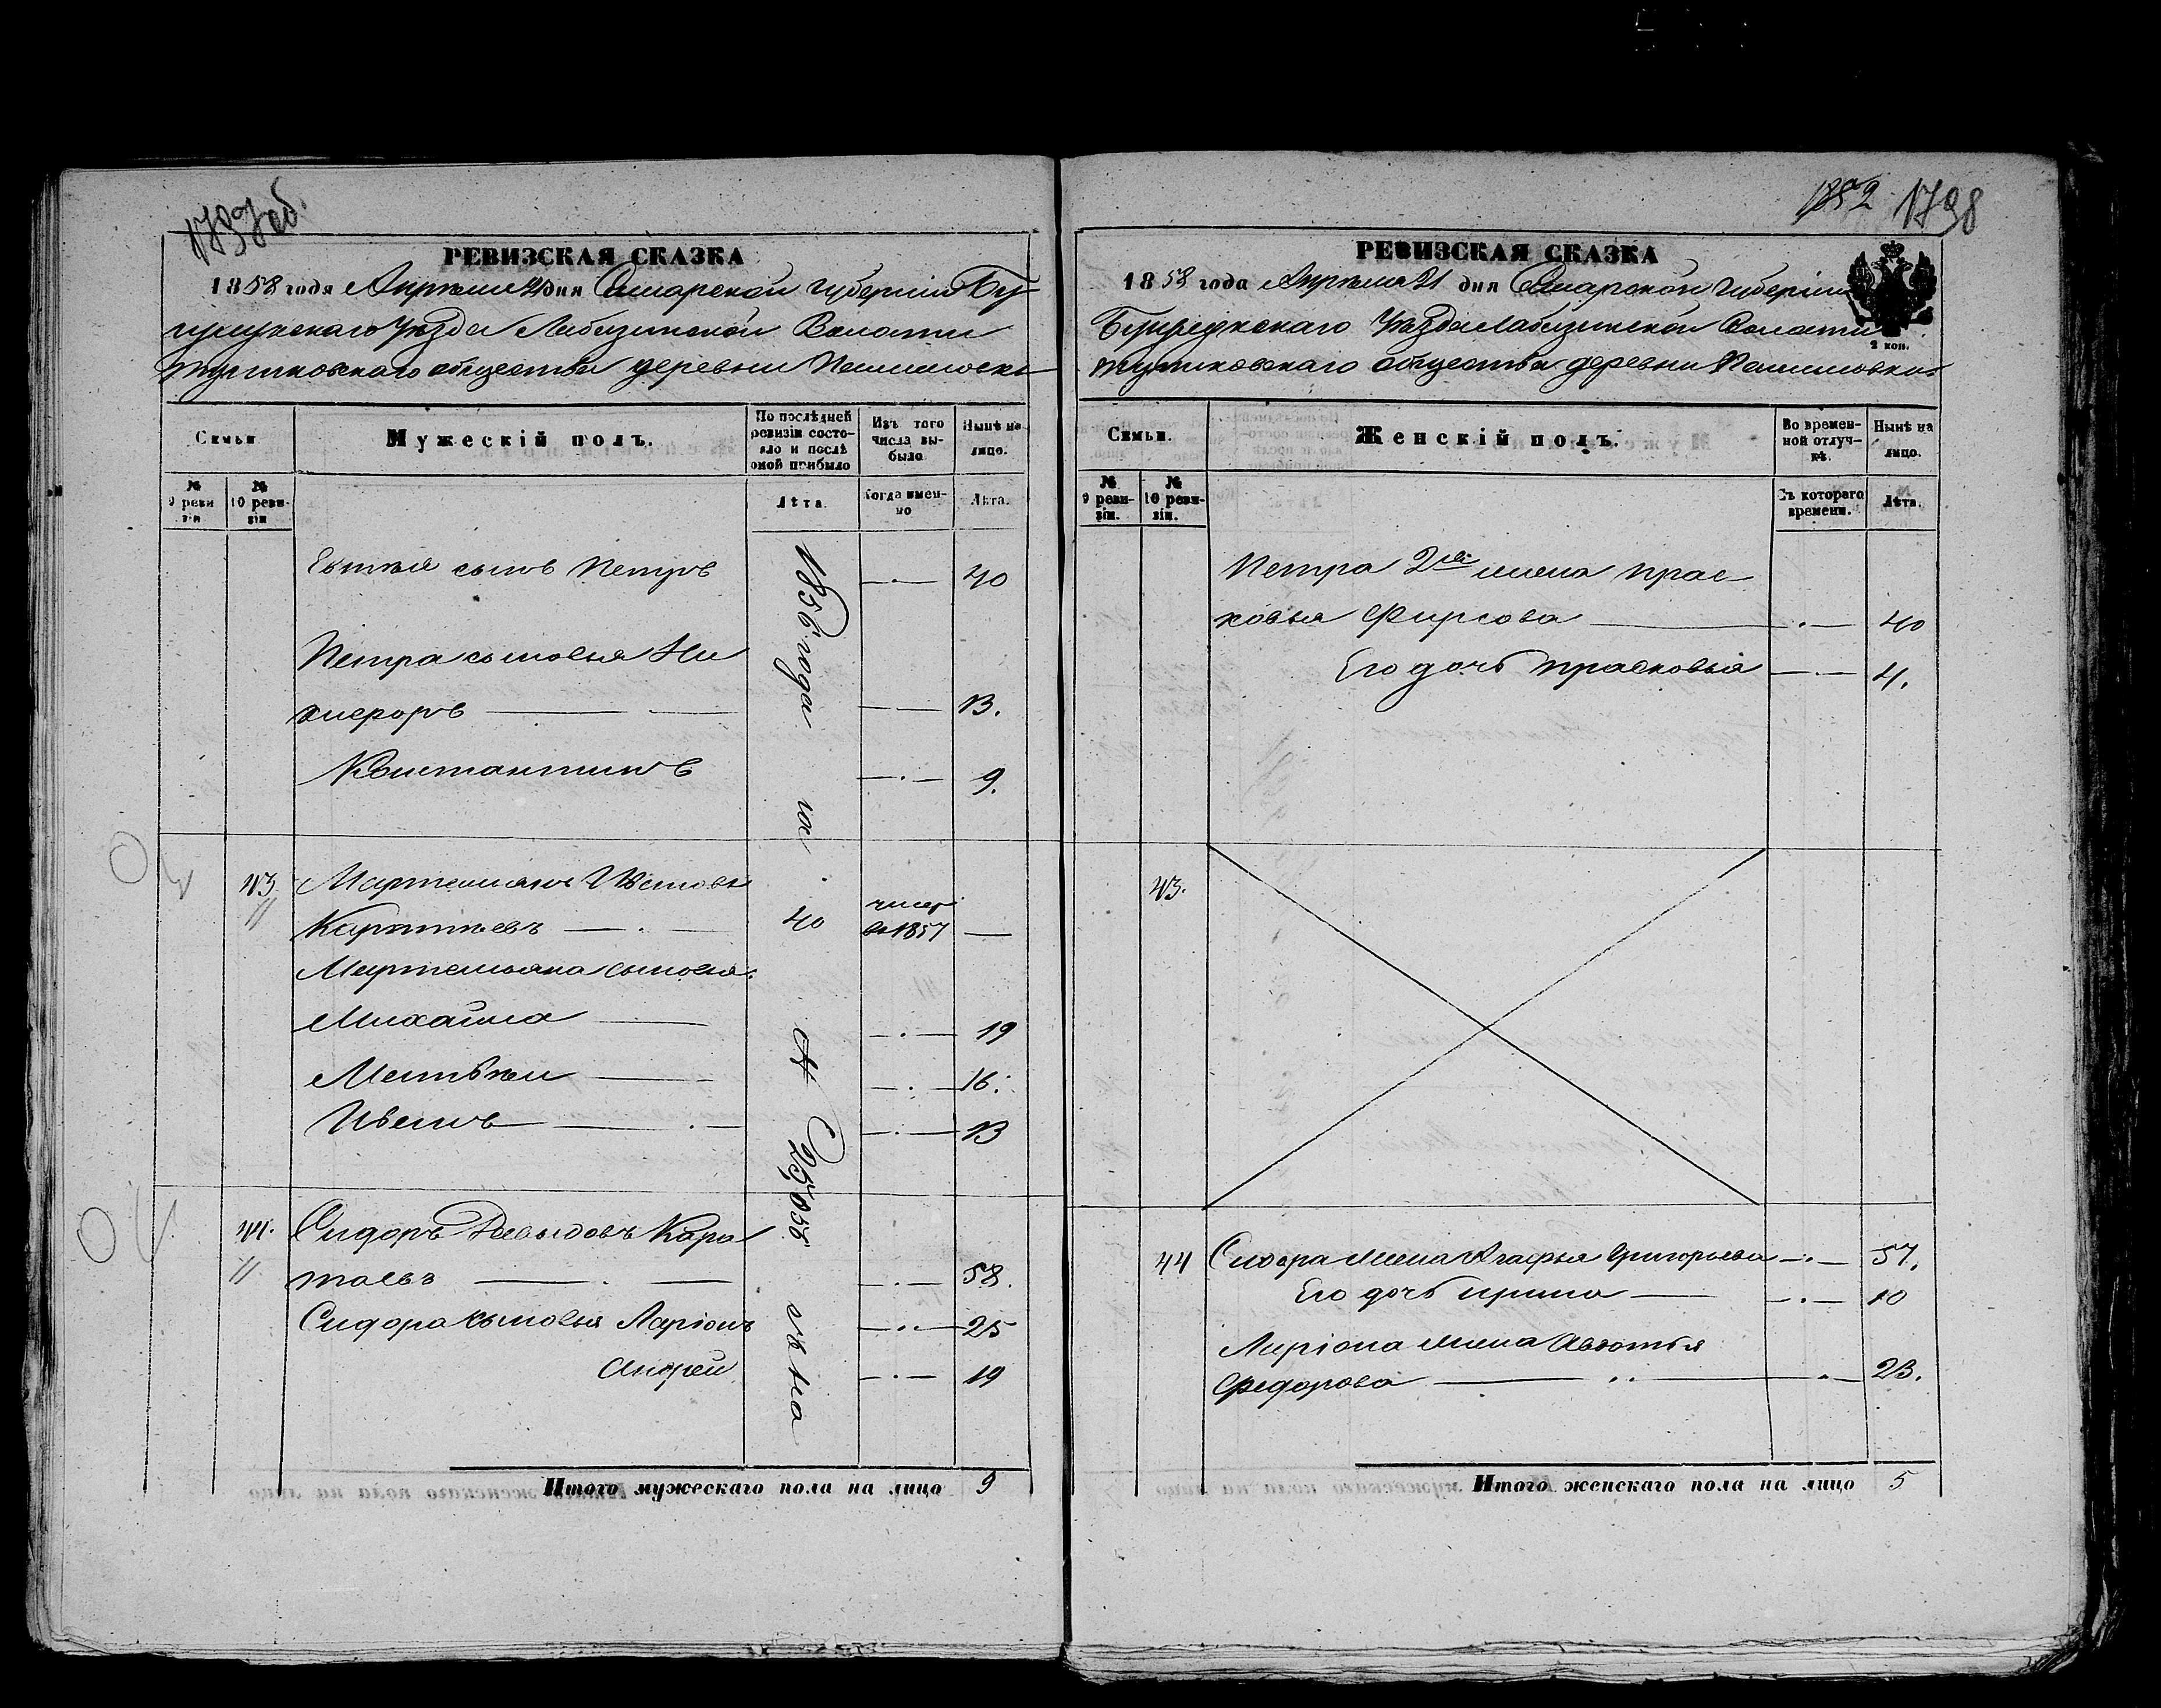 1797 об.
РЕВИЗСКАЯ СКАЗКА
1858 года Апреля 21 дня Самарской губернии Бу-
гузулукскаго Уезда Лабазинской Волости
общества деревни
Семьи
Мужескій полъ.
По послѣдней ревизіи состояло и послѣ оной прибыло
Изъ того числа выбыло
Нынѣ на лицо.
№ 9 ревизіи
№ 10 ревизіи
Лѣта.
Когда именно
Лѣта.
сынъ Петръ — 40
1856 года
Петра сыновья Ни
кифоръ — 13.
Константинъ — 9.
43 Мартемьянъ Ивановъ
40 умеръ въ 1857 —
Мартемьяна сыновья
Михайла — 19
Матвѣй — 16.
Иванъ — 13
44. Сидоръ Давыдовъ Кара
таевъ — 58.
Сидора сыновья Ларіонъ — 25
Андрей — 19
Итого мужескаго пола на лицо 9
1852 1798
РЕВИЗСКАЯ СКАЗКА
1858 года Апреля 21 дня Самарской губерніи
Бузулукскаго Уезда Лабазинской Волости
общества деревни
2 коп.
Семьи.
Женскій полъ.
Во временной отлучкѣ.
Нынѣ на лицо.
№ 9 ревизіи.
№ 10 ревизіи.
Съ котораго времени.
Лѣта.
Петра 2я жена Прас-
ковья Фирсова — 40
Его дочь Прасковья — 4.
43.
44 Сидора жена Агафья Григорьева — 57.
Его дочь Ирина — 10
Ларіона жена Авдотья
Федорова — 23.
Итого женскаго пола на лицо 5